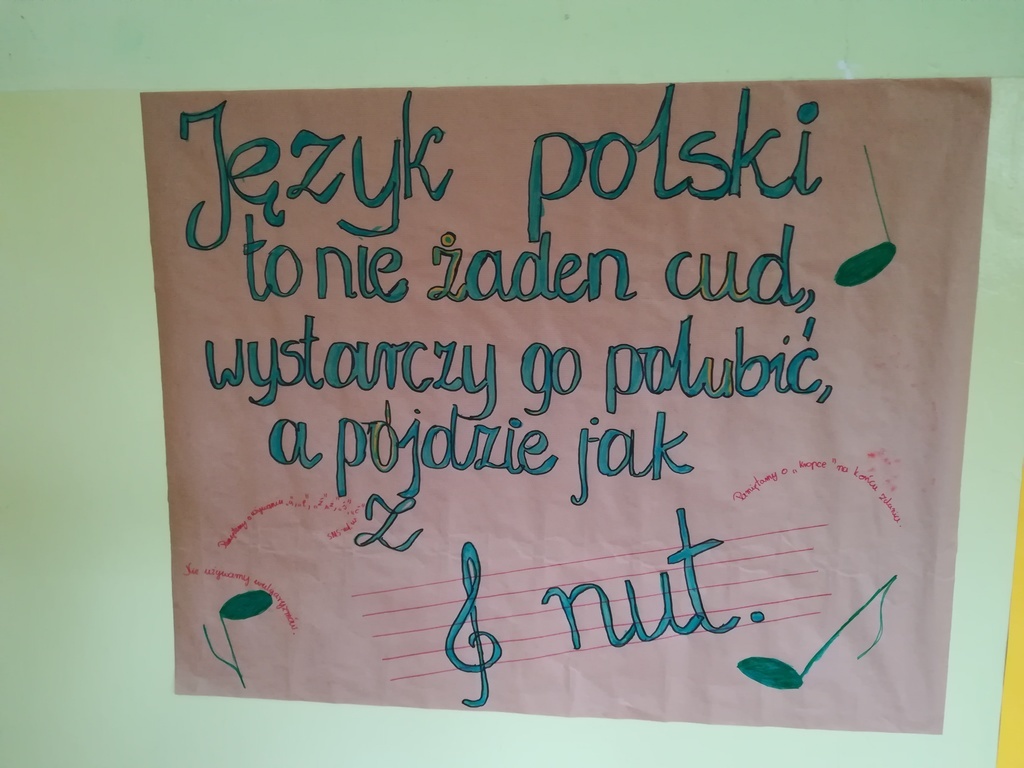 Język polski
to nie żaden cud,
wystarczy go polubić,
a pójdzie jak
z
nut.
Pamiętamy o „kropce” na końcu zdania.
Pamiętamy o używaniu
Nie używamy wulgaryzmów.